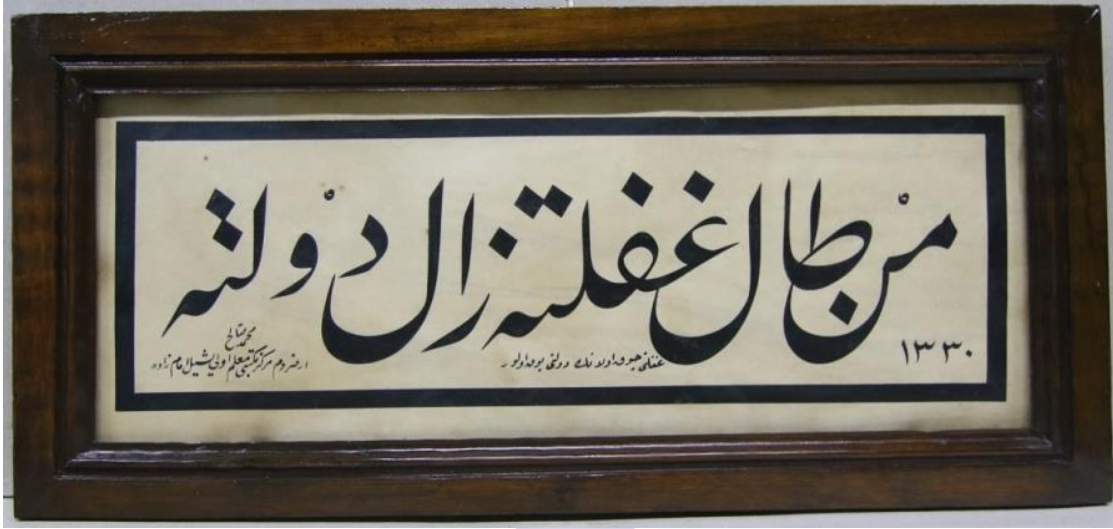 من طال غفلته زال دولته
١٣٣٠
غفلتى چوق اولانك دولتى يوق اولور
محمد صالح
ارضروم مركز مكتبى معلم اولى يشيل امام زاده